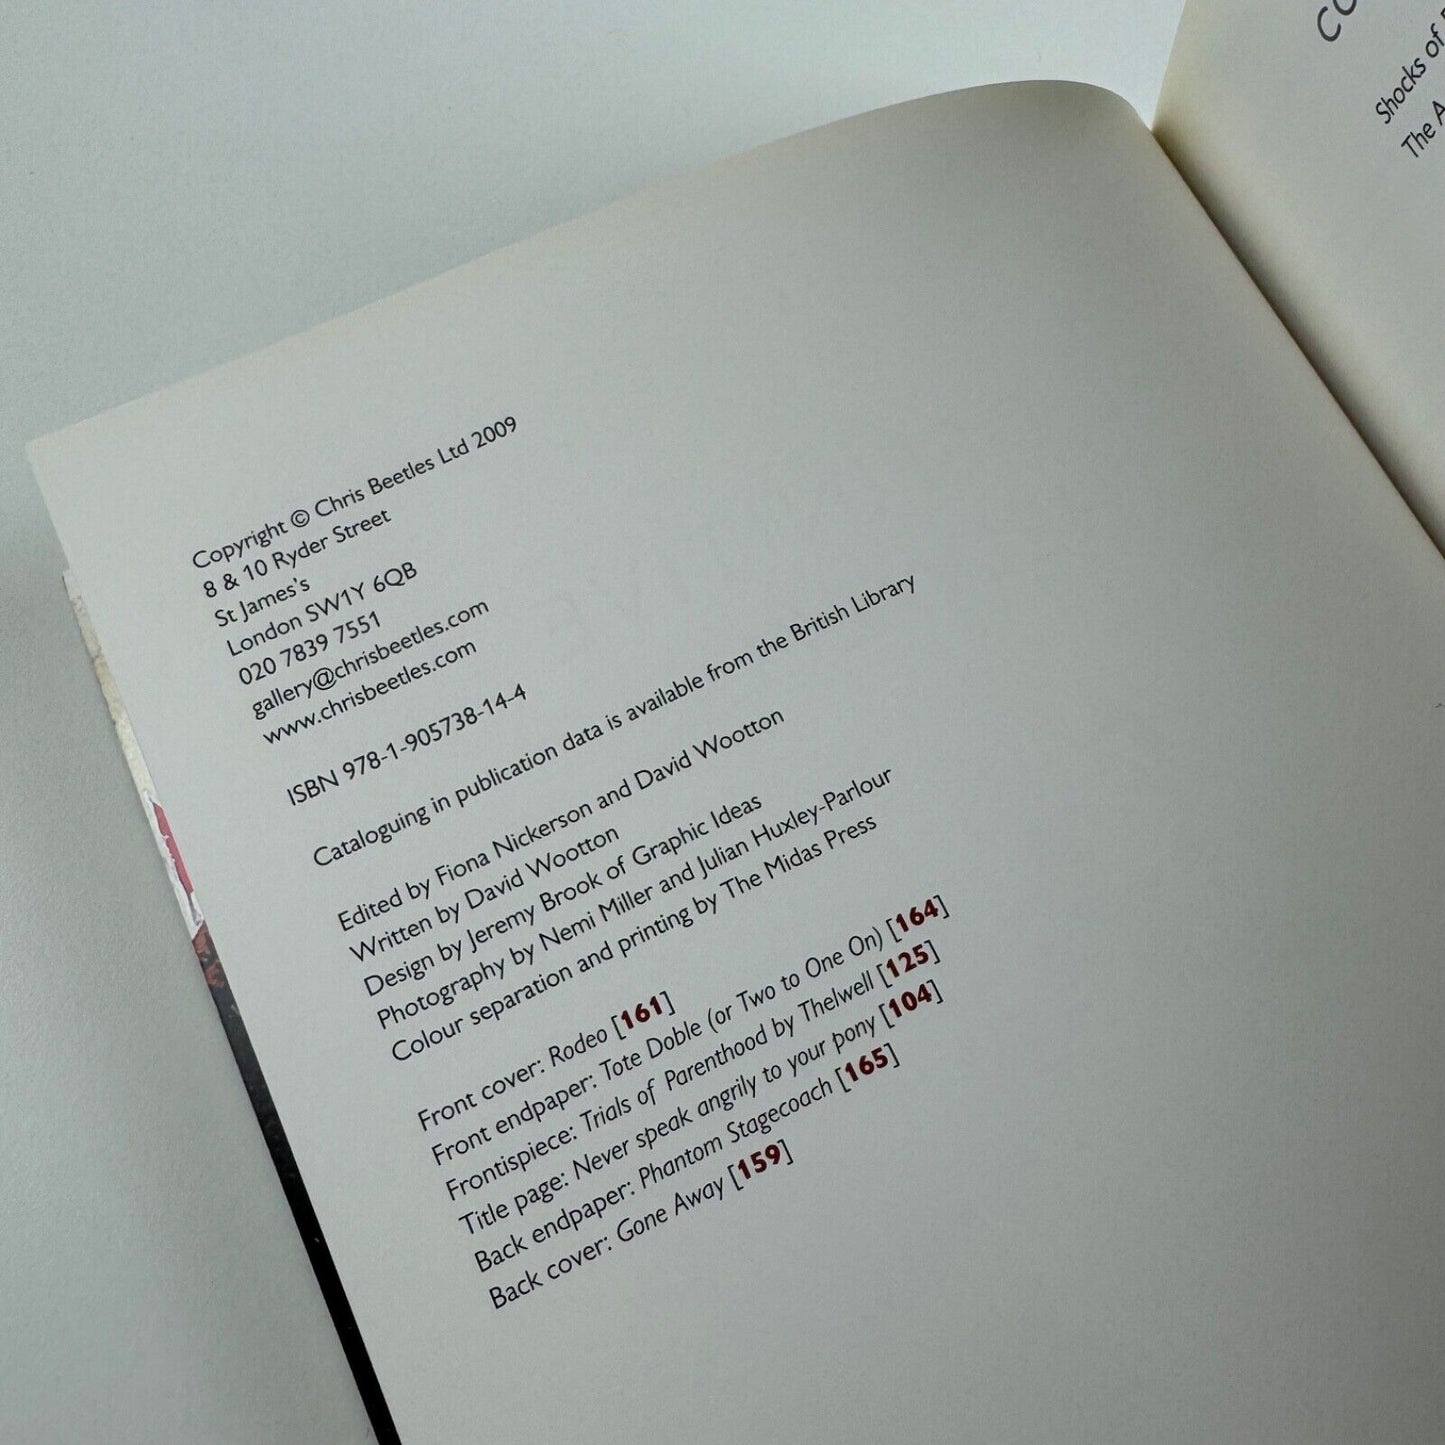 Copyright © Chris Beetles Ltd 2009
8 & 10 Ryder Street
St James's
London SW1Y 6QB
020 7839 7551
gallery@chrisbeetles.com
www.chrisbeetles.com
ISBN 978-1-905738-14-4
Cataloguing in publication data is available from the British Library
Edited by Fiona Nickerson and David Wootton
Written by David Wootton
Design by Jeremy Brook of Graphic Ideas
Photography by Nemi Miller and Julian Huxley-Parlour
Colour separation and printing by The Midas Press
Front cover: Rodeo [161]
Front endpaper: Tote Doble (or Two to One On) [164]
Frontispiece: Trials of Parenthood by Thelwell [125]
Title page: Never speak angrily to your pony [104]
Back endpaper: Phantom Stagecoach [165]
Back cover: Gone Away [159]
Shocks of
The